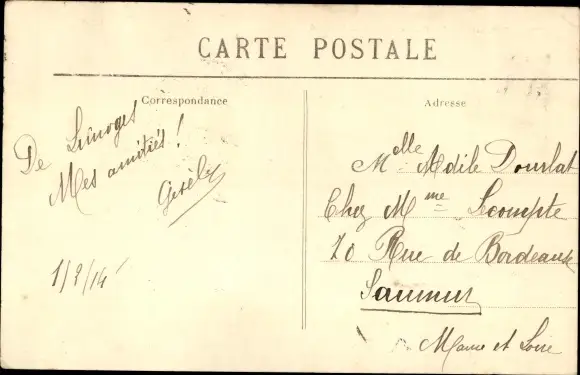 CARTE POSTALE
Correspondance
De Limoges
Mes amitiés !
1/2/14
Adresse
Melle Odile Dourlat
Chez Mme Lecompte
70 Rue de Bordeaux
Saumur
Maine et Loire